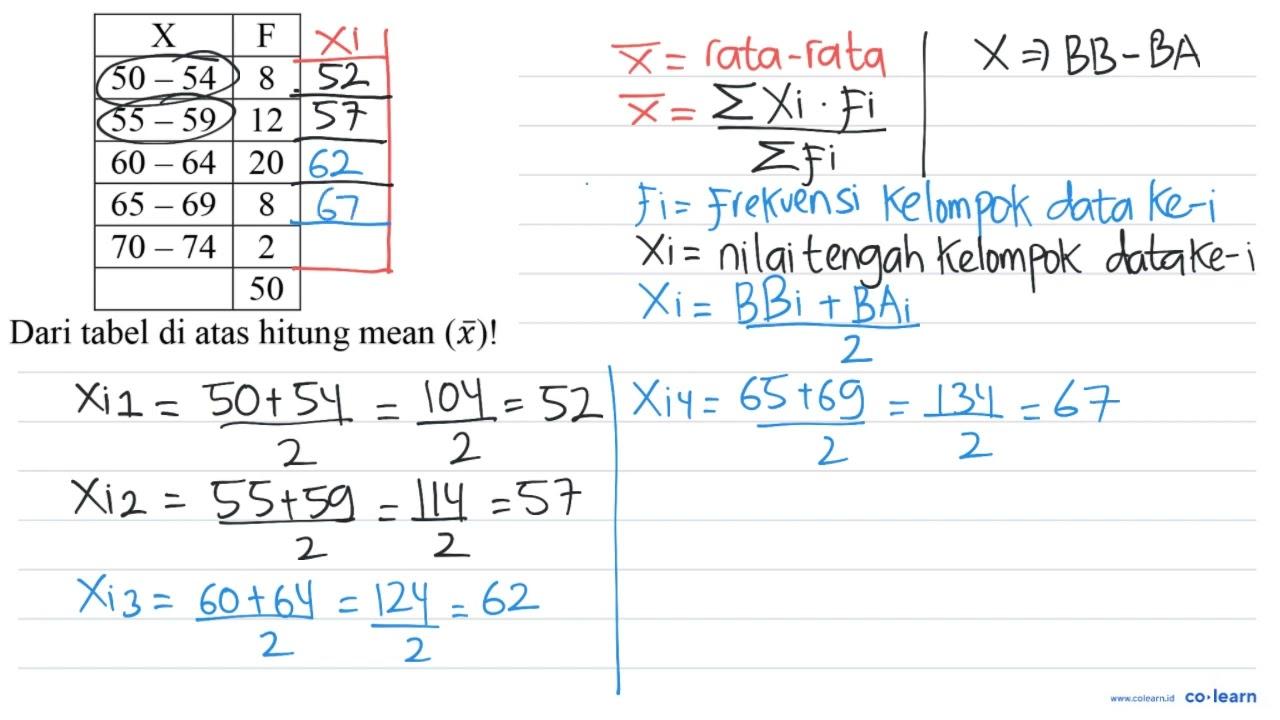 X F Xi
50 – 54 8 52
55 – 59 12 57
60 – 64 20 62
65 – 69 8 67
70 – 74 2
50
Dari tabel di atas hitung mean (x̄)!
x̄ = rata-rata
x̄ = ΣXi · Fi / ΣFi
X ⇒ BB - BA
Fi = Frekuensi Kelompok data ke-i
Xi = nilai tengah Kelompok data ke-i
Xi = BBi + BAi / 2
Xi1 = 50+54 / 2 = 104 / 2 = 52
Xi2 = 55+59 / 2 = 114 / 2 = 57
Xi3 = 60+64 / 2 = 124 / 2 = 62
Xi4 = 65+69 / 2 = 134 / 2 = 67
www.colearn.id co·learn